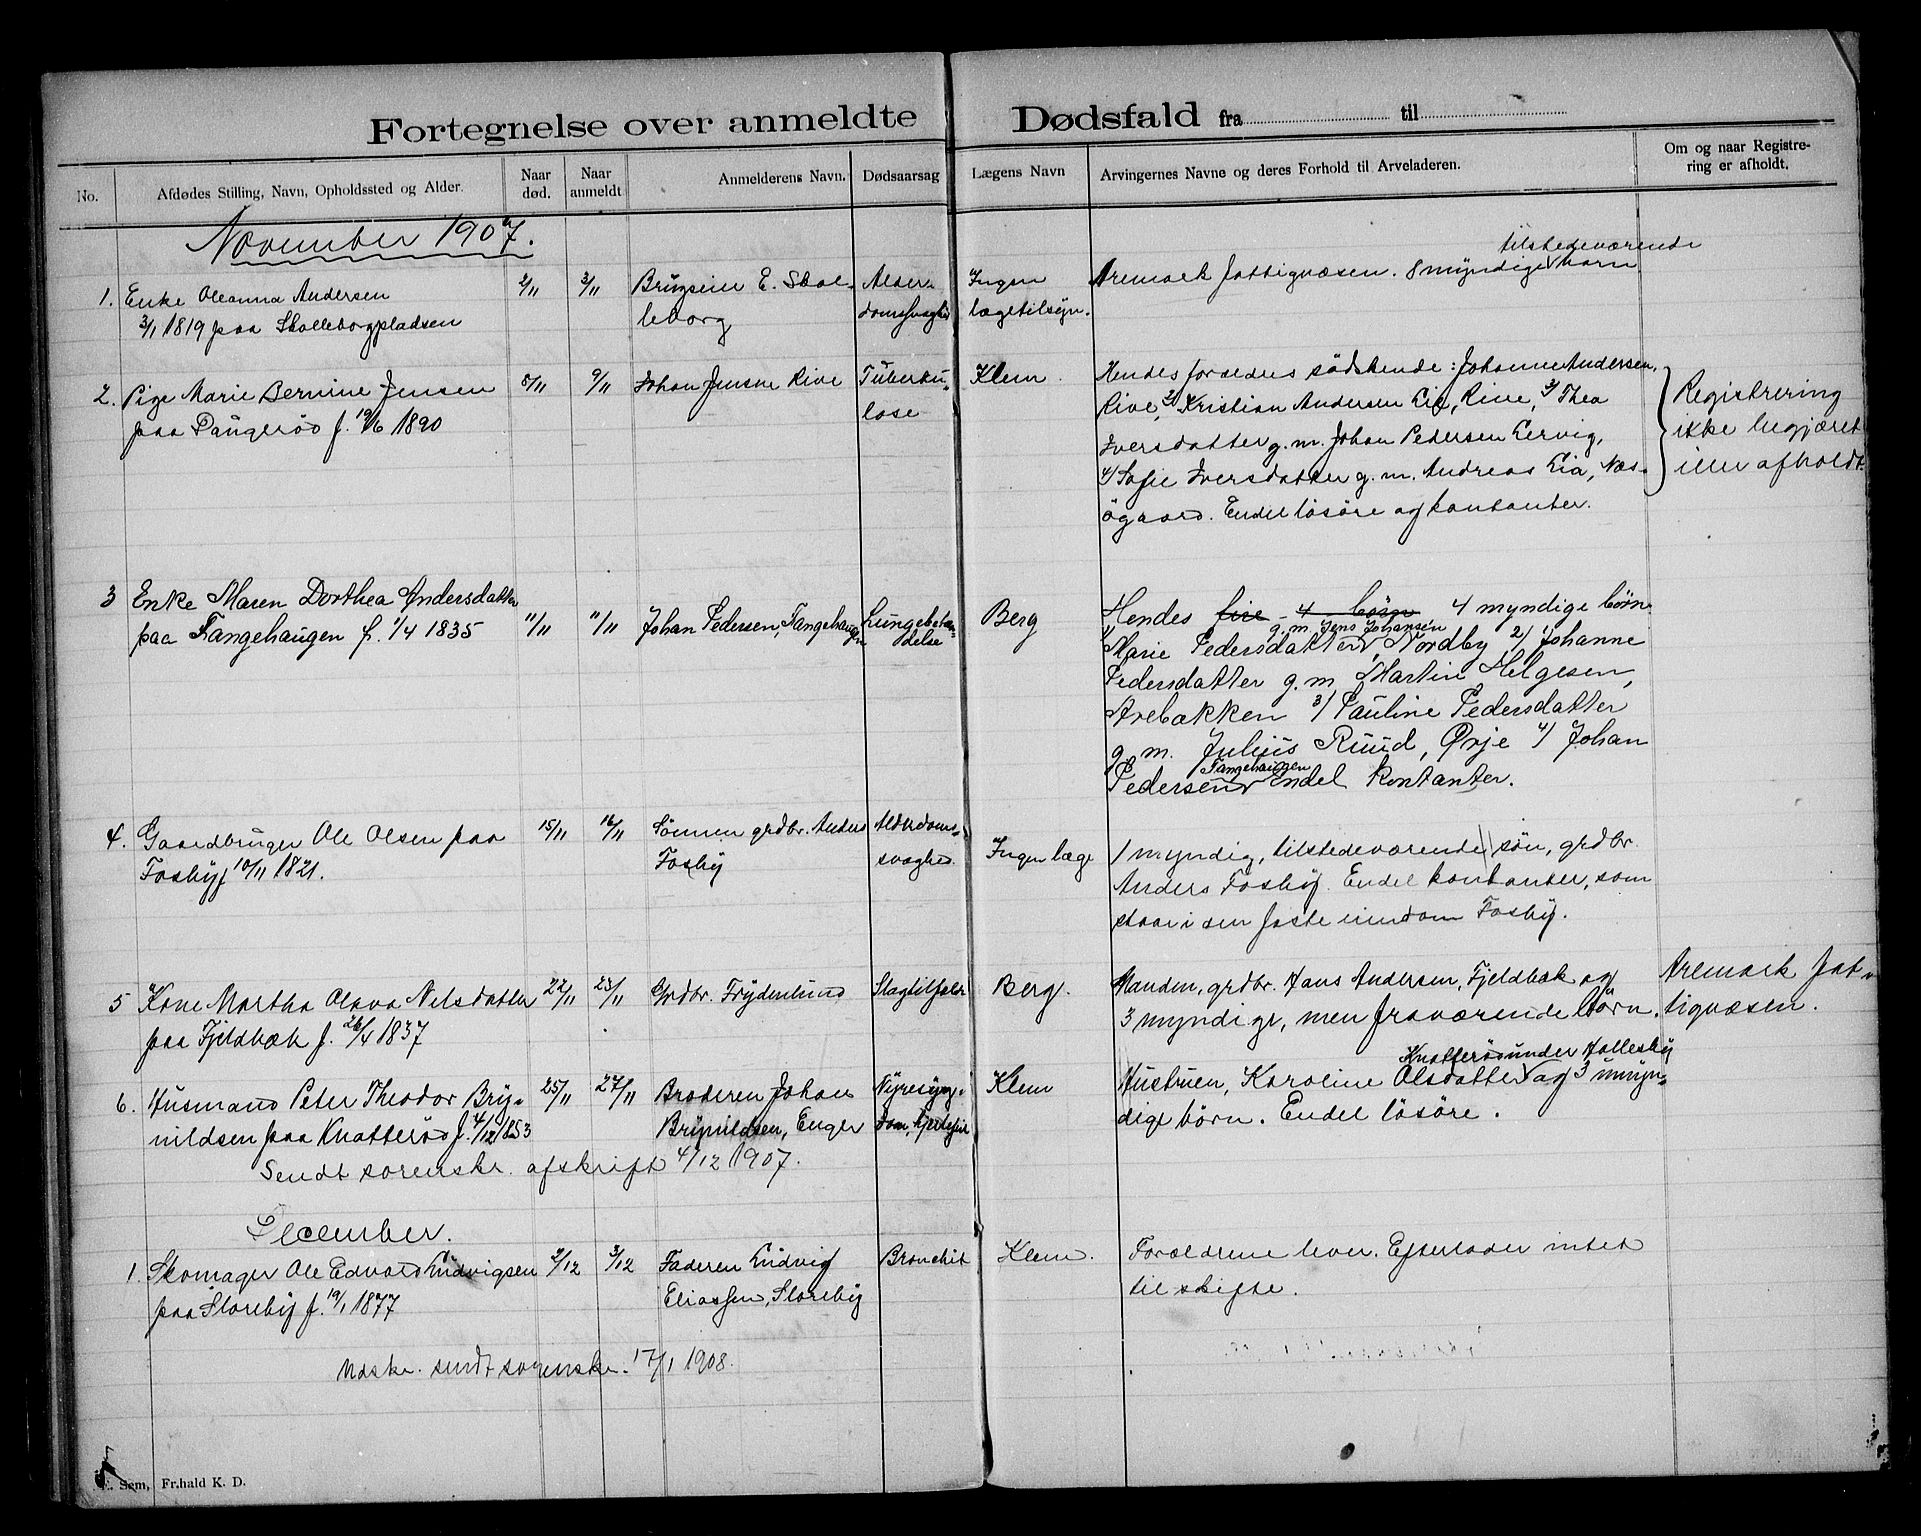 Fortegnelse over anmeldte Dødsfald fra til
No. Afdødes Stilling, Navn, Opholdssted og Alder. Naar død. Naar anmeldt Anmelderens Navn. Dødsaarsag Lægens Navn Arvingernes Navne og deres Forhold til Arveladeren. Om og naar Registrering er afholdt.
November 1907.
1. Enke Oleanna Andersen
3/1 1819 paa Skolleborgpladsen
2/11
3/11
Brugseier E. Skol-
leborg
Alder-
domssvaghed
Ingen
lægetilsyn.
tilstedeværende
Aremark fattigvæsen. 8 myndige barn
2. Pige Marie Bernine Jensen
paa Paugerød f. 19/6 1890
8/11
9/11
Johan Jensen Rive
Tuberku-
lose
Klem.
Hendes forældres södskende: Johanne Andersen,
Rive, 2/ Kristian Andersen Lie, Rive, 3/ Thea
Iversdatter g. m. Johan Pedersen Lervig,
4/ Sofie Iversdatter g. m. Andreas Lia, Næs-
ögaard. Endel lösöre og kontanter.
Registrering
ikke begjæret
eller afholdt
3 Enke Maren Dorthea Andersdatter
paa Tangehaugen f. 1/4 1835
11/11
11/11
Johan Pedersen, Tangehaugen
Lungebetæn-
delse
Berg
Hendes fire 4 børn 4 myndige børn
g. m. Jens Johansen
1/ Marie Pedersdatter, Nordby 2/ Johanne
Pedersdatter g. m. Martin Helgesen,
Arebakken 3/ Pauline Pedersdatter
g. m. Julius Ruud, Ørje 4/ Johan
Tangehaugen
Pedersen Endel kontanter.
4. Gaardbruger Ole Olsen paa
Fosby f. 10/11 1821.
15/11
16/11
Sönnen grdbr. Anders
Fosby
Alderdoms-
svaghed.
Ingen læge
1 myndig, tilstedeværende sön, grdbr.
Anders Fosby. Endel kontanter, som
staar i den faste eiendom Fosby.
5 Kone Martha Olava Nilsdatter
paa Fjeldbæk f. 26/4 1837
22/11
23/11
Grdbr. Frydenlund
Slagtilfælde
Berg.
Manden, grdbr. Hans Andersen, Fjeldbæk og
3 myndige, men fraværende börn.
Aremark fat-
tigvæsen.
6. Husmand Peter Theodor Bry-
nildsen paa Knatterød f. 4/12 1853
25/11
27/11
Broderen Johan
Brynildsen, Enger
Nyresyg-
dom, hjertefeil
Klem
Knatterød under Holleby
Hustruen, Karoline Olsdatter og 3 umyn-
dige börn. Endel lösöre.
Sendt sorenskr. afskrift 4/12 1907.
December.
1. Skomager Ole Edvard Ludvigsen
paa Storeby f. 19/1 1877
2/12
3/12
Faderen Ludvig
Eliassen, Storeby
Bronchit
Klem.
Forældrene lever. Efterlader intet
til skifte.
Udskr. sendt sorenskr. 17/1 1908.
E. Sem, Fr.hald K. D.